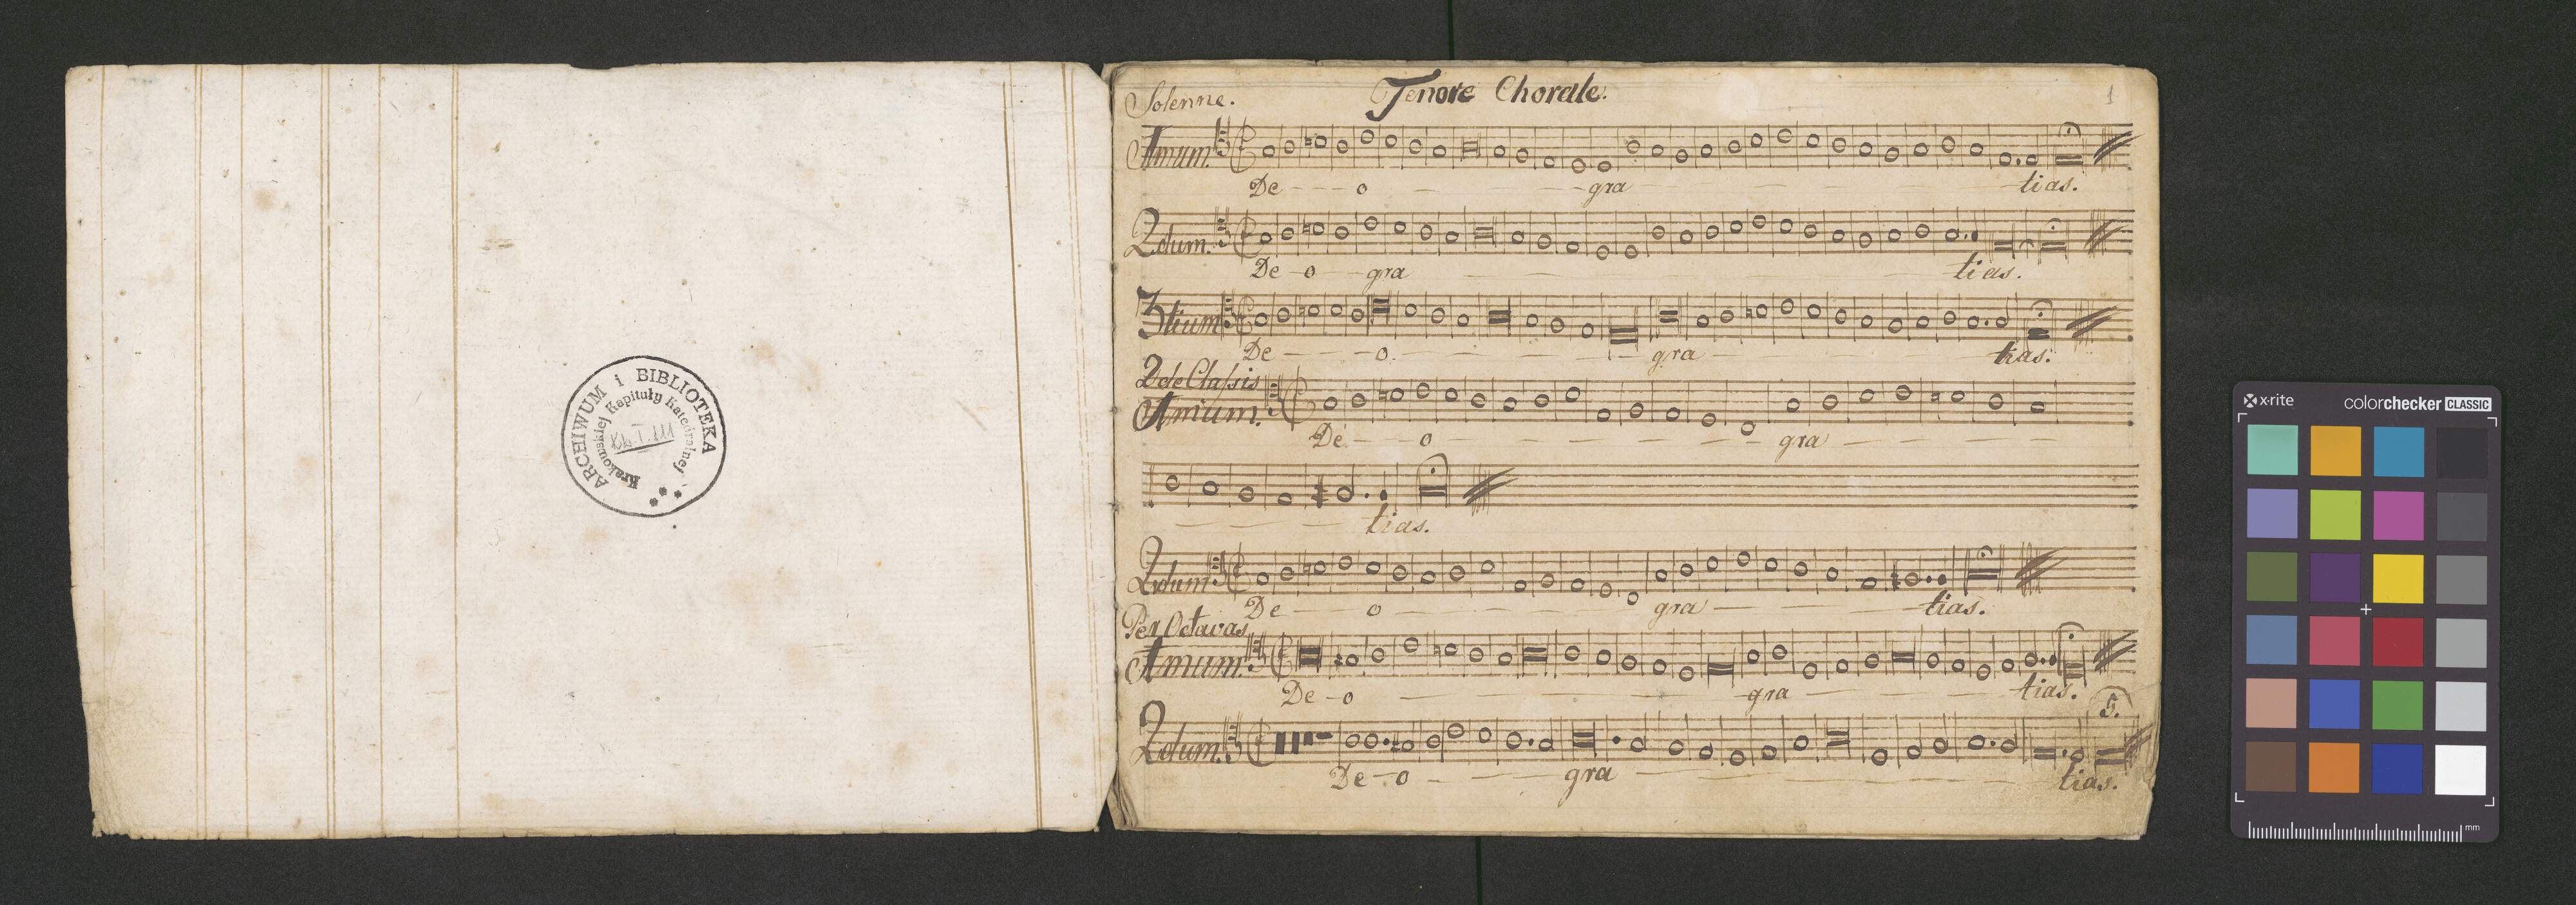 ARCHIWUM i BIBLIOTEKA
Krakowskiej Kapituły Katedralnej
Kk. I. 111
Tenore Chorale.
1
Solenne.
1mum.
De - - - o - - gra - tias.
2dum.
De - o - gra - tias.
3tium
De - - - o. - - gra - tias.
2dae Classis
1mium.
De - - o - - gra - - -
- - - tias.
2dum
De - - o - - gra - - tias.
Per Octavas
1mum.
De - o - - gra - tias.
5.
2dum.
De - o - - gra - - tias.
x-rite
colorchecker CLASSIC
mm